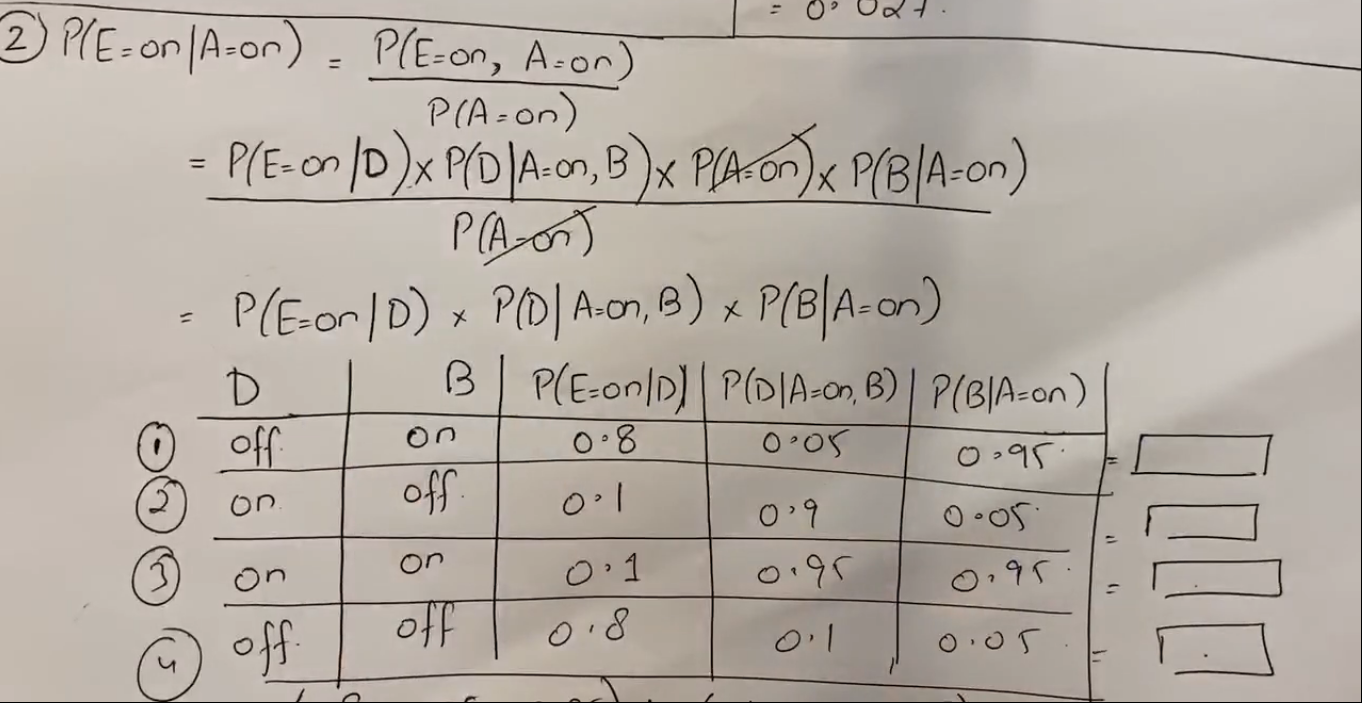 = 0.027.
② P(E=on|A=on) = P(E=on, A=on)
P(A=on)
= P(E=on|D) x P(D|A=on, B) x P(A=on) x P(B|A=on)
P(A=on)
= P(E=on|D) x P(D|A=on, B) x P(B|A=on)
D B P(E=on|D) P(D|A=on, B) P(B|A=on)
① off on 0.8 0.05 0.95 =
② on off 0.1 0.9 0.05 =
③ on on 0.1 0.95 0.95 =
④ off off 0.8 0.1 0.05 =